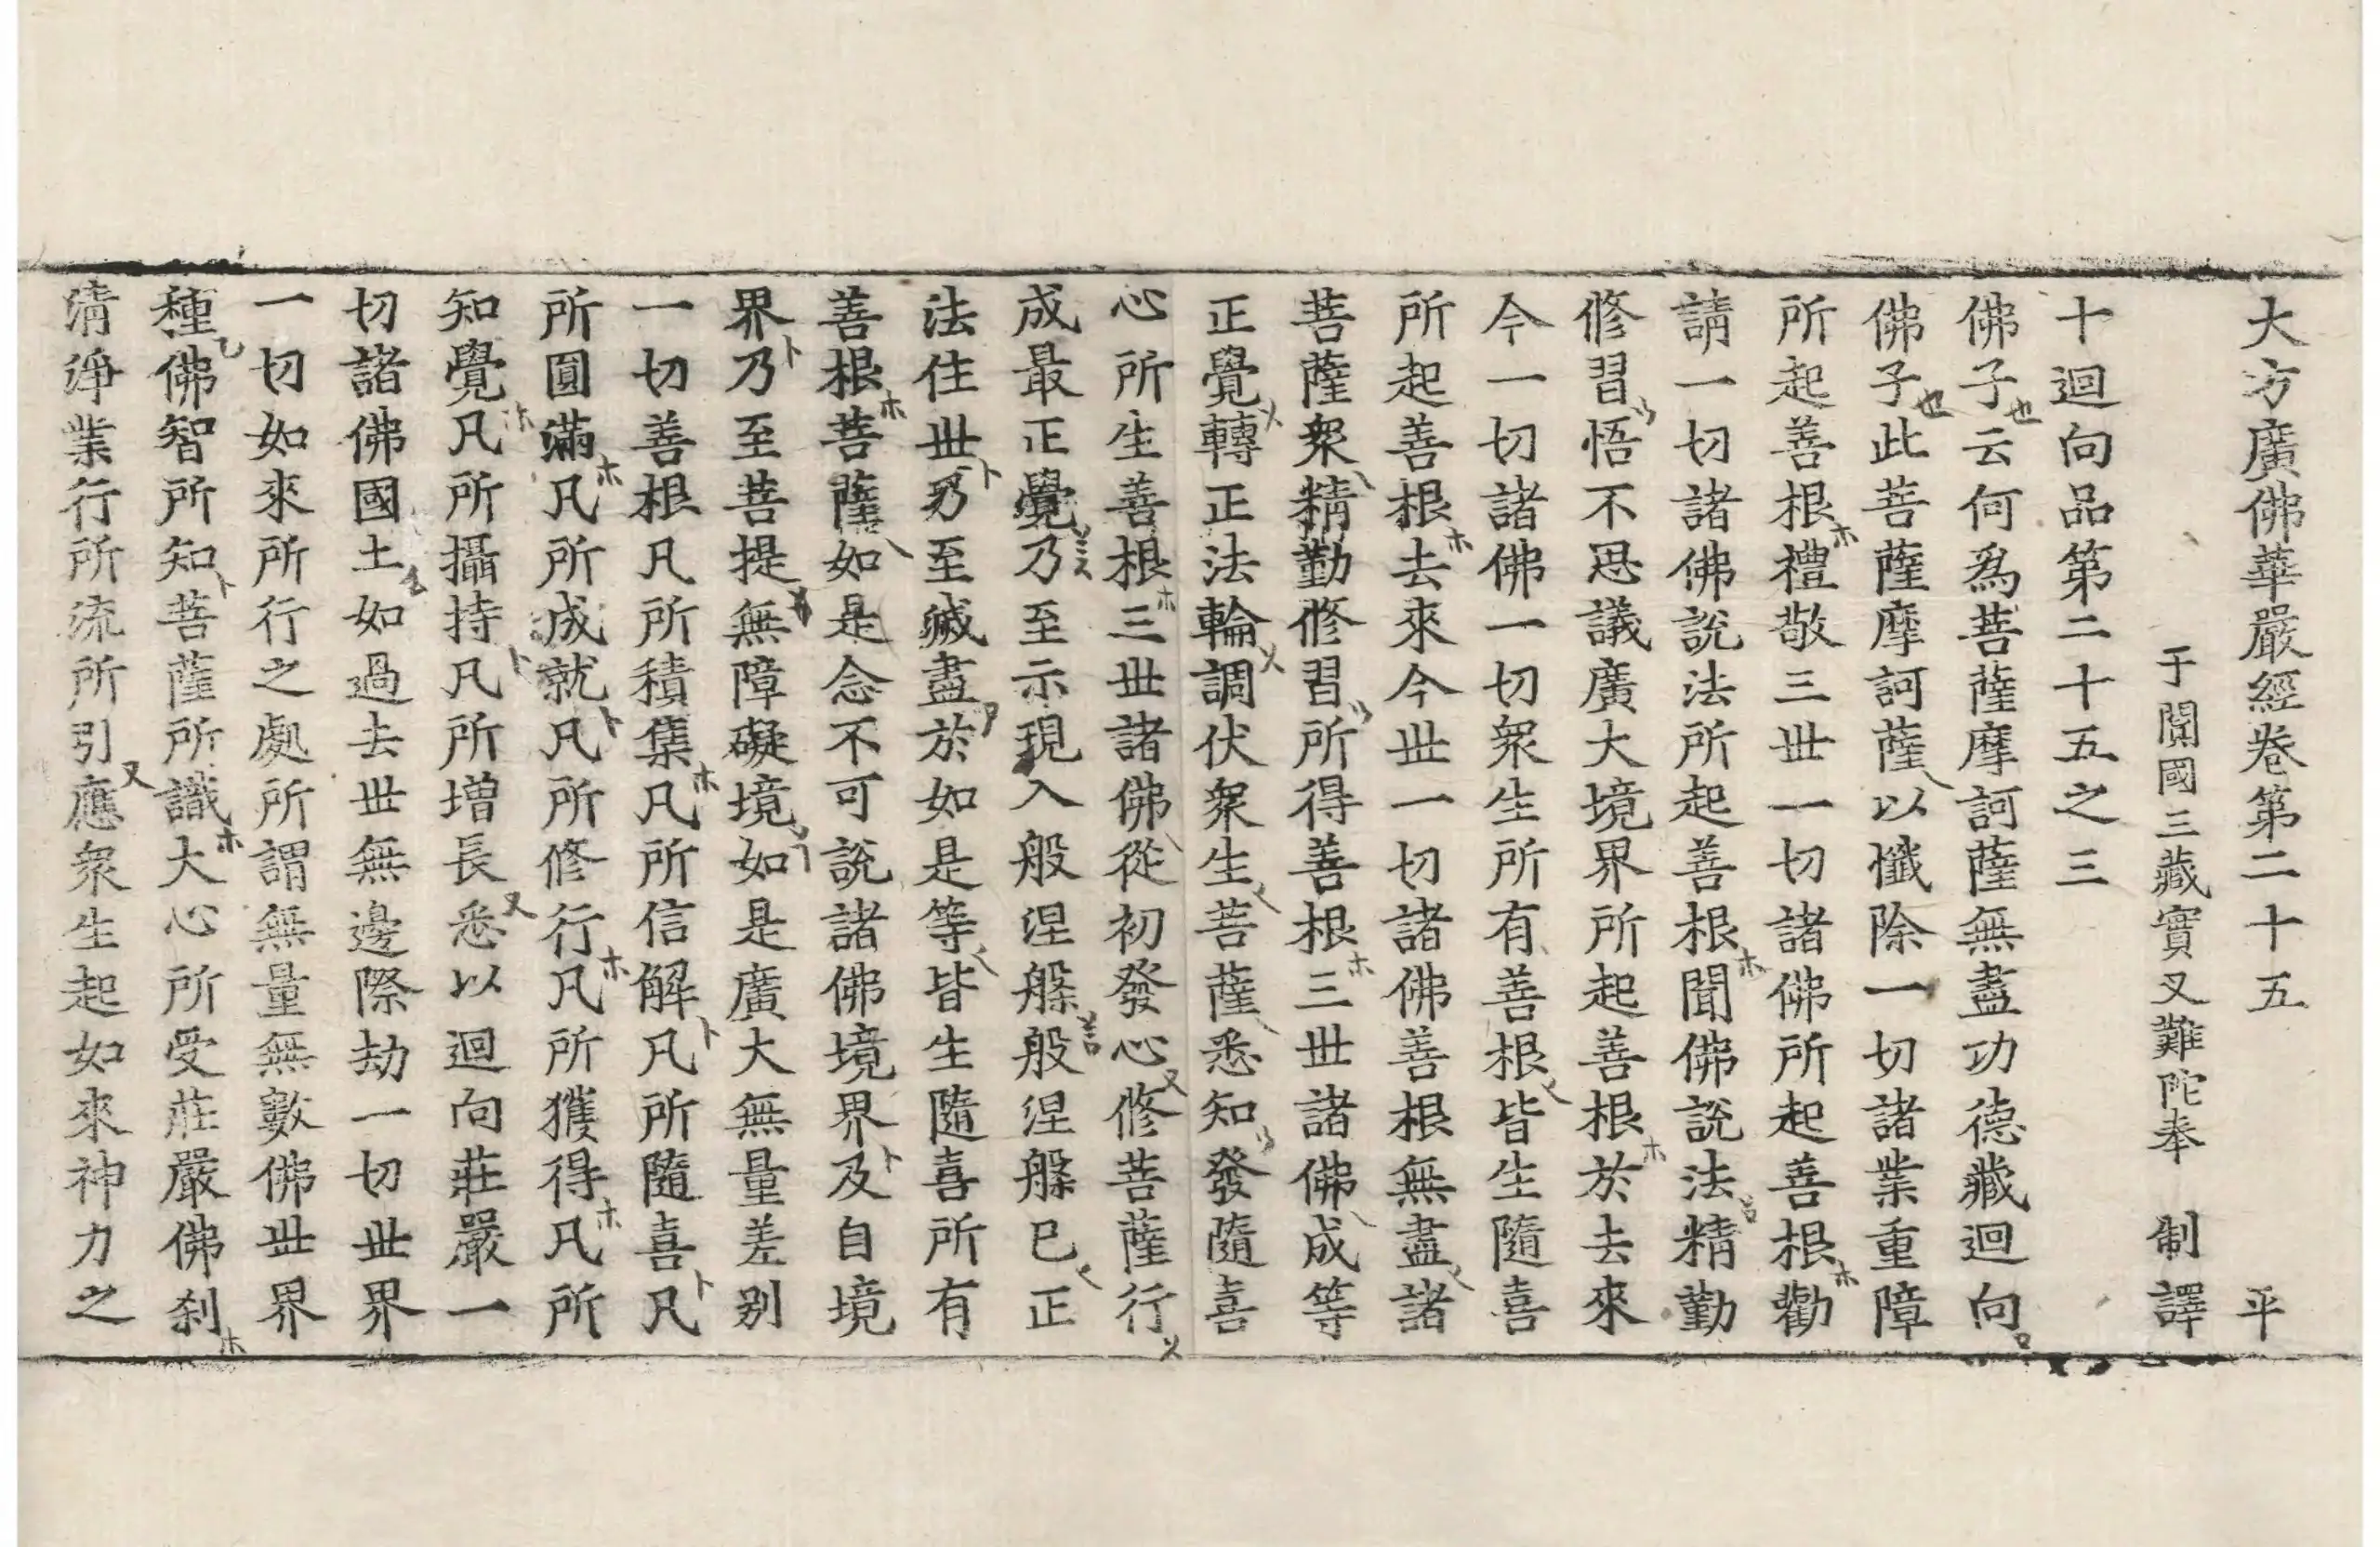 大方廣佛華嚴經卷第二十五 平
于闐國三藏實叉難陀奉 制譯
十迴向品第二十五之三
佛子云何爲菩薩摩訶薩無盡功德藏迴向
佛子此菩薩摩訶薩以懺除一切諸業重障
所起善根禮敬三世一切諸佛所起善根勸
請一切諸佛說法所起善根聞佛說法精勤
修習悟不思議廣大境界所起善根於去來
今一切諸佛一切衆生所有善根皆生隨喜
所起善根去來今世一切諸佛善根無盡諸
菩薩衆精勤修習所得善根三世諸佛成等
正覺轉正法輪調伏衆生菩薩悉知發隨喜
心所生善根三世諸佛從初發心修菩薩行
成最正覺乃至示現入般涅槃般涅槃已正
法住世乃至滅盡於如是等皆生隨喜所有
善根菩薩如是念不可說諸佛境界及自境
界乃至菩提無障礙境如是廣大無量差别
一切善根凡所積集凡所信解凡所隨喜凡
所圓滿凡所成就凡所修行凡所獲得凡所
知覺凡所攝持凡所增長悉以迴向莊嚴一
切諸佛國土如過去世無邊際劫一切世界
一切如來所行之處所謂無量無數佛世界
種佛智所知菩薩所識大心所受莊嚴佛刹
清淨業行所流所引應衆生起如來神力之